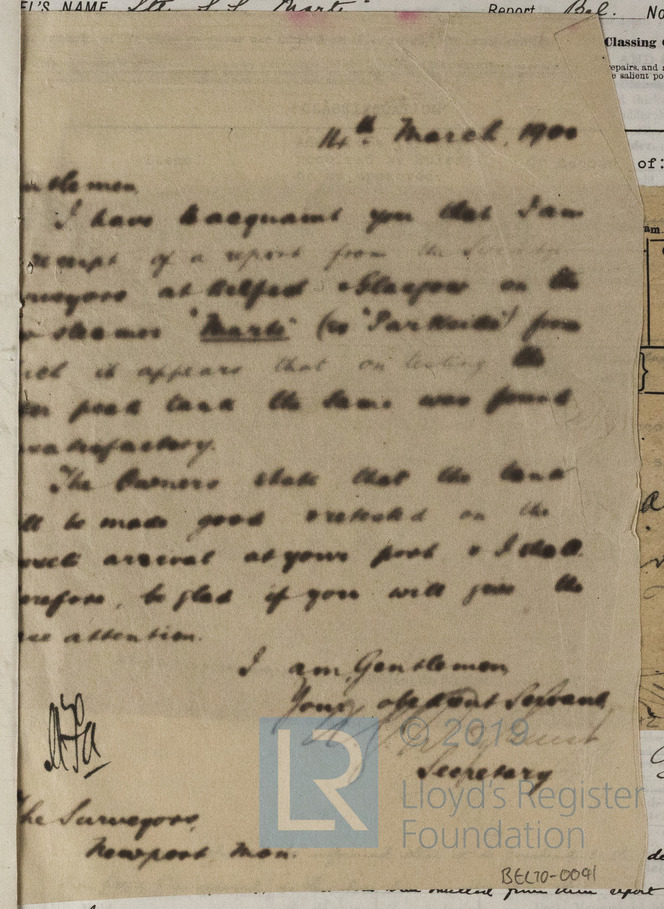 EL'S NAME Str. S.S. Marti Report Bel. No
Classing
repairs, and
e salient po
of:
14th March, 1900
ntlemen,
I have to acquaint you that I am
receipt of a report from the
rveyors at Belfast Glasgow on the
steamer "Marti" (ex "Parkside") from
ich it appears that on testing the
peak tank the same was found
satisfactory.
The Owners state that the tank
ll be made good & retested on the
arrival at your port & I shall
refore, be glad if you will give the
attention.
I am, Gentlemen,
Your obedient Servant
Secretary
The Surveyors,
Newport, Mon.
LR © 2019
Lloyd's Register
Foundation
BEL70-0091